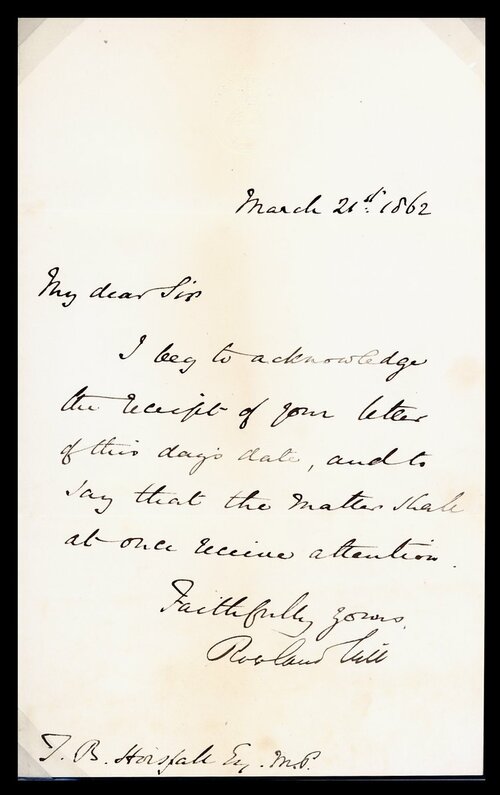 March 21st. 1862
My dear Sir
I beg to acknowledge
the receipt of your letter
of this day's date, and to
say that the matter shall
at once receive attention.
Faithfully yours.
Rowland Hill
T. B. Horsfall Esq. M.P.